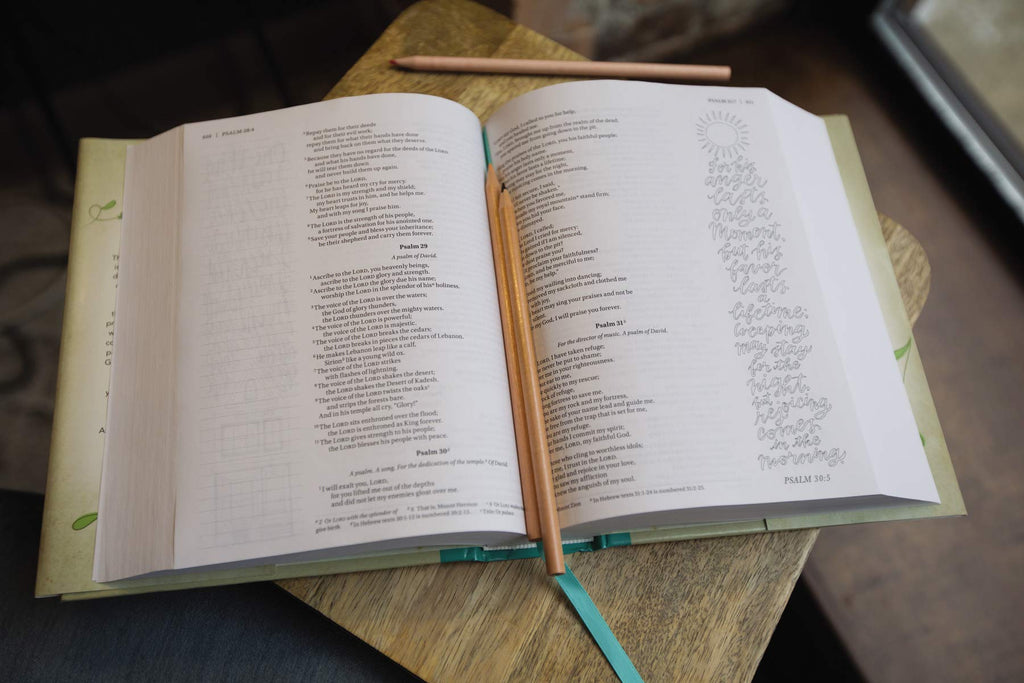 608 | PSALM 28:4
4 Repay them for their deeds
and for their evil work;
repay them for what their hands have done
and bring back on them what they deserve.
5 Because they have no regard for the deeds of the LORD
and what his hands have done,
he will tear them down
and never build them up again.
6 Praise be to the LORD,
for he has heard my cry for mercy.
7 The LORD is my strength and my shield;
my heart trusts in him, and he helps me.
My heart leaps for joy,
and with my song I praise him.
8 The LORD is the strength of his people,
a fortress of salvation for his anointed one.
9 Save your people and bless your inheritance;
be their shepherd and carry them forever.
Psalm 29
A psalm of David.
1 Ascribe to the LORD, you heavenly beings,
ascribe to the LORD glory and strength.
2 Ascribe to the LORD the glory due his name;
worship the LORD in the splendor of his a holiness.
3 The voice of the LORD is over the waters;
the God of glory thunders,
the LORD thunders over the mighty waters.
4 The voice of the LORD is powerful;
the voice of the LORD is majestic.
5 The voice of the LORD breaks the cedars;
the LORD breaks in pieces the cedars of Lebanon.
6 He makes Lebanon leap like a calf,
Sirion b like a young wild ox.
7 The voice of the LORD strikes
with flashes of lightning.
8 The voice of the LORD shakes the desert;
the LORD shakes the Desert of Kadesh.
9 The voice of the LORD twists the oaks c
and strips the forests bare.
And in his temple all cry, "Glory!"
10 The LORD sits enthroned over the flood;
the LORD is enthroned as King forever.
11 The LORD gives strength to his people;
the LORD blesses his people with peace.
Psalm 30 d
A psalm. A song. For the dedication of the temple. e Of David.
1 I will exalt you, LORD,
for you lifted me out of the depths
and did not let my enemies gloat over me.
a 2 Or LORD with the splendor of b 6 That is, Mount Hermon
give birth d In Hebrew texts 30:1-12 is numbered 30:2-13. e Title: Or palace
my God, I called to you for help,
brought me up from the realm of the dead,
me from going down to the pit.
of the LORD, you his faithful people;
his holy name.
anger lasts only a moment,
lasts a lifetime;
stay for the night,
comes in the morning.
secure, I said,
never be shaken.
you favored me,
my royal mountain a stand firm;
you hid your face,
dismayed.
LORD, I called;
Lord I cried for mercy:
gained if I am silenced,
down to the pit?
praise you?
proclaim your faithfulness?
and be merciful to me;
be my help.
my wailing into dancing;
removed my sackcloth and clothed me
with joy,
heart may sing your praises and not be
silent.
my God, I will praise you forever.
Psalm 31 b
For the director of music. A psalm of David.
LORD, I have taken refuge;
never be put to shame;
me in your righteousness.
ear to me,
quickly to my rescue;
rock of refuge,
fortress to save me.
you are my rock and my fortress,
sake of your name lead and guide me.
free from the trap that is set for me,
you are my refuge.
hands I commit my spirit;
me, LORD, my faithful God.
those who cling to worthless idols;
me, I trust in the LORD.
glad and rejoice in your love,
saw my affliction
knew the anguish of my soul.
Mount Zion b In Hebrew texts 31:1-24 is numbered 31:2-25.
For his
anger
lasts
only a
Moment,
but his
favor
lasts
a
lifetime;
weeping
may stay
for the
night,
but
rejoicing
comes
in the
morning.
PSALM 30:5